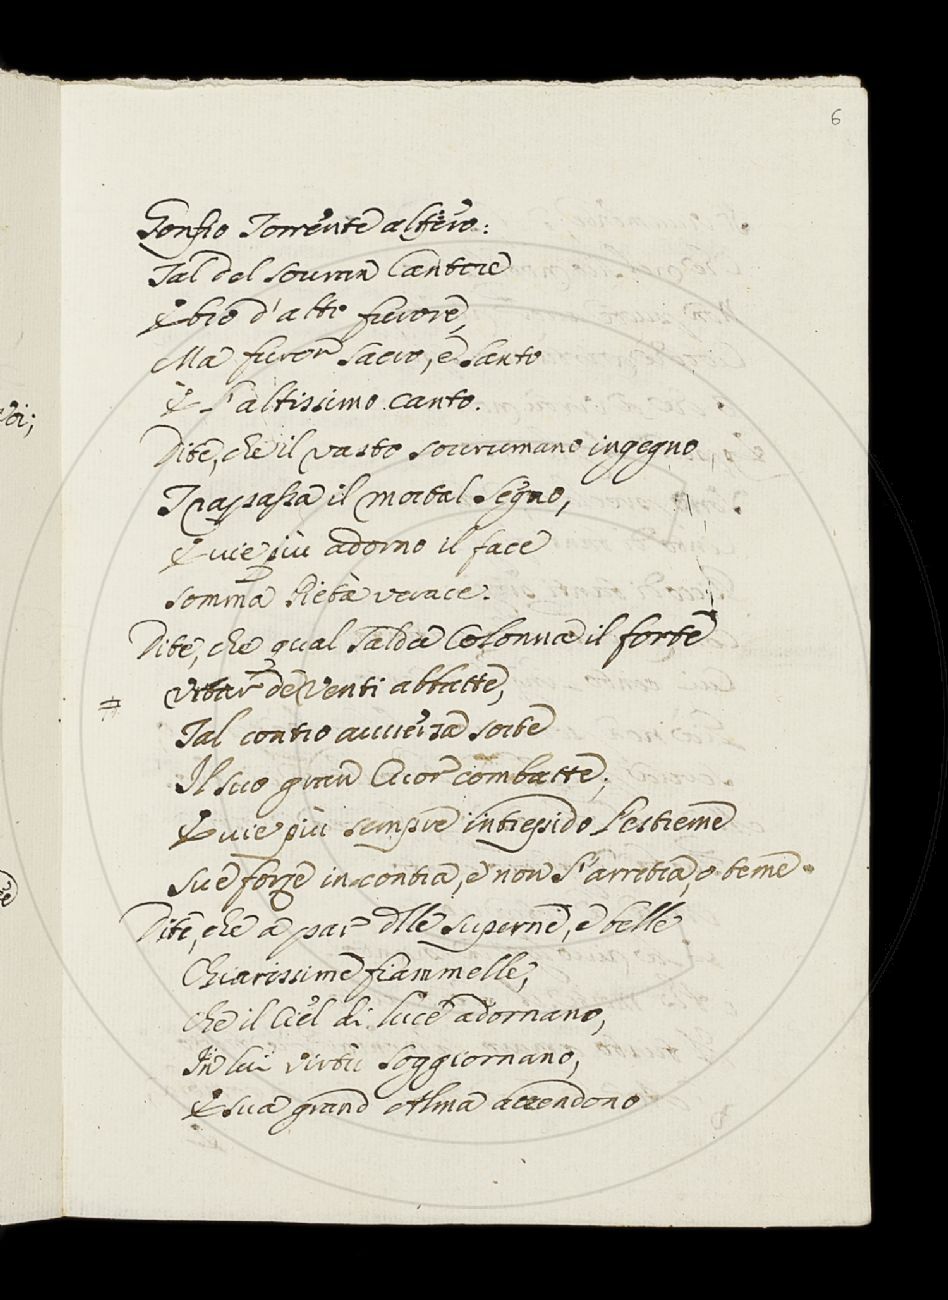 6
Gonfio Torrente altero:
Tal del sovran Cantore
Ebro d'alto furore,
Ma furor sacro, e santo
È l'altissimo canto.
Dite, che il vasto sovrumano ingegno,
Trapassa il mortal segno,
E vie più adorno il face
Somma Pietà verace.
Dite, che qual salda Colonna il forte
# Urtar de Venti abbatte,
Tal contro avversa sorte
Il suo gran Cuor combatte;
E vie più sempre intrepido l'estreme
Sue forze incontra, e non s'arretra, o teme.
Dite, che a par dlle superne, e belle
Chiarissime fiammelle,
Che il Ciel di luce adornano,
In lui virtù soggiornano,
E sua grand Alma accendono
voi;